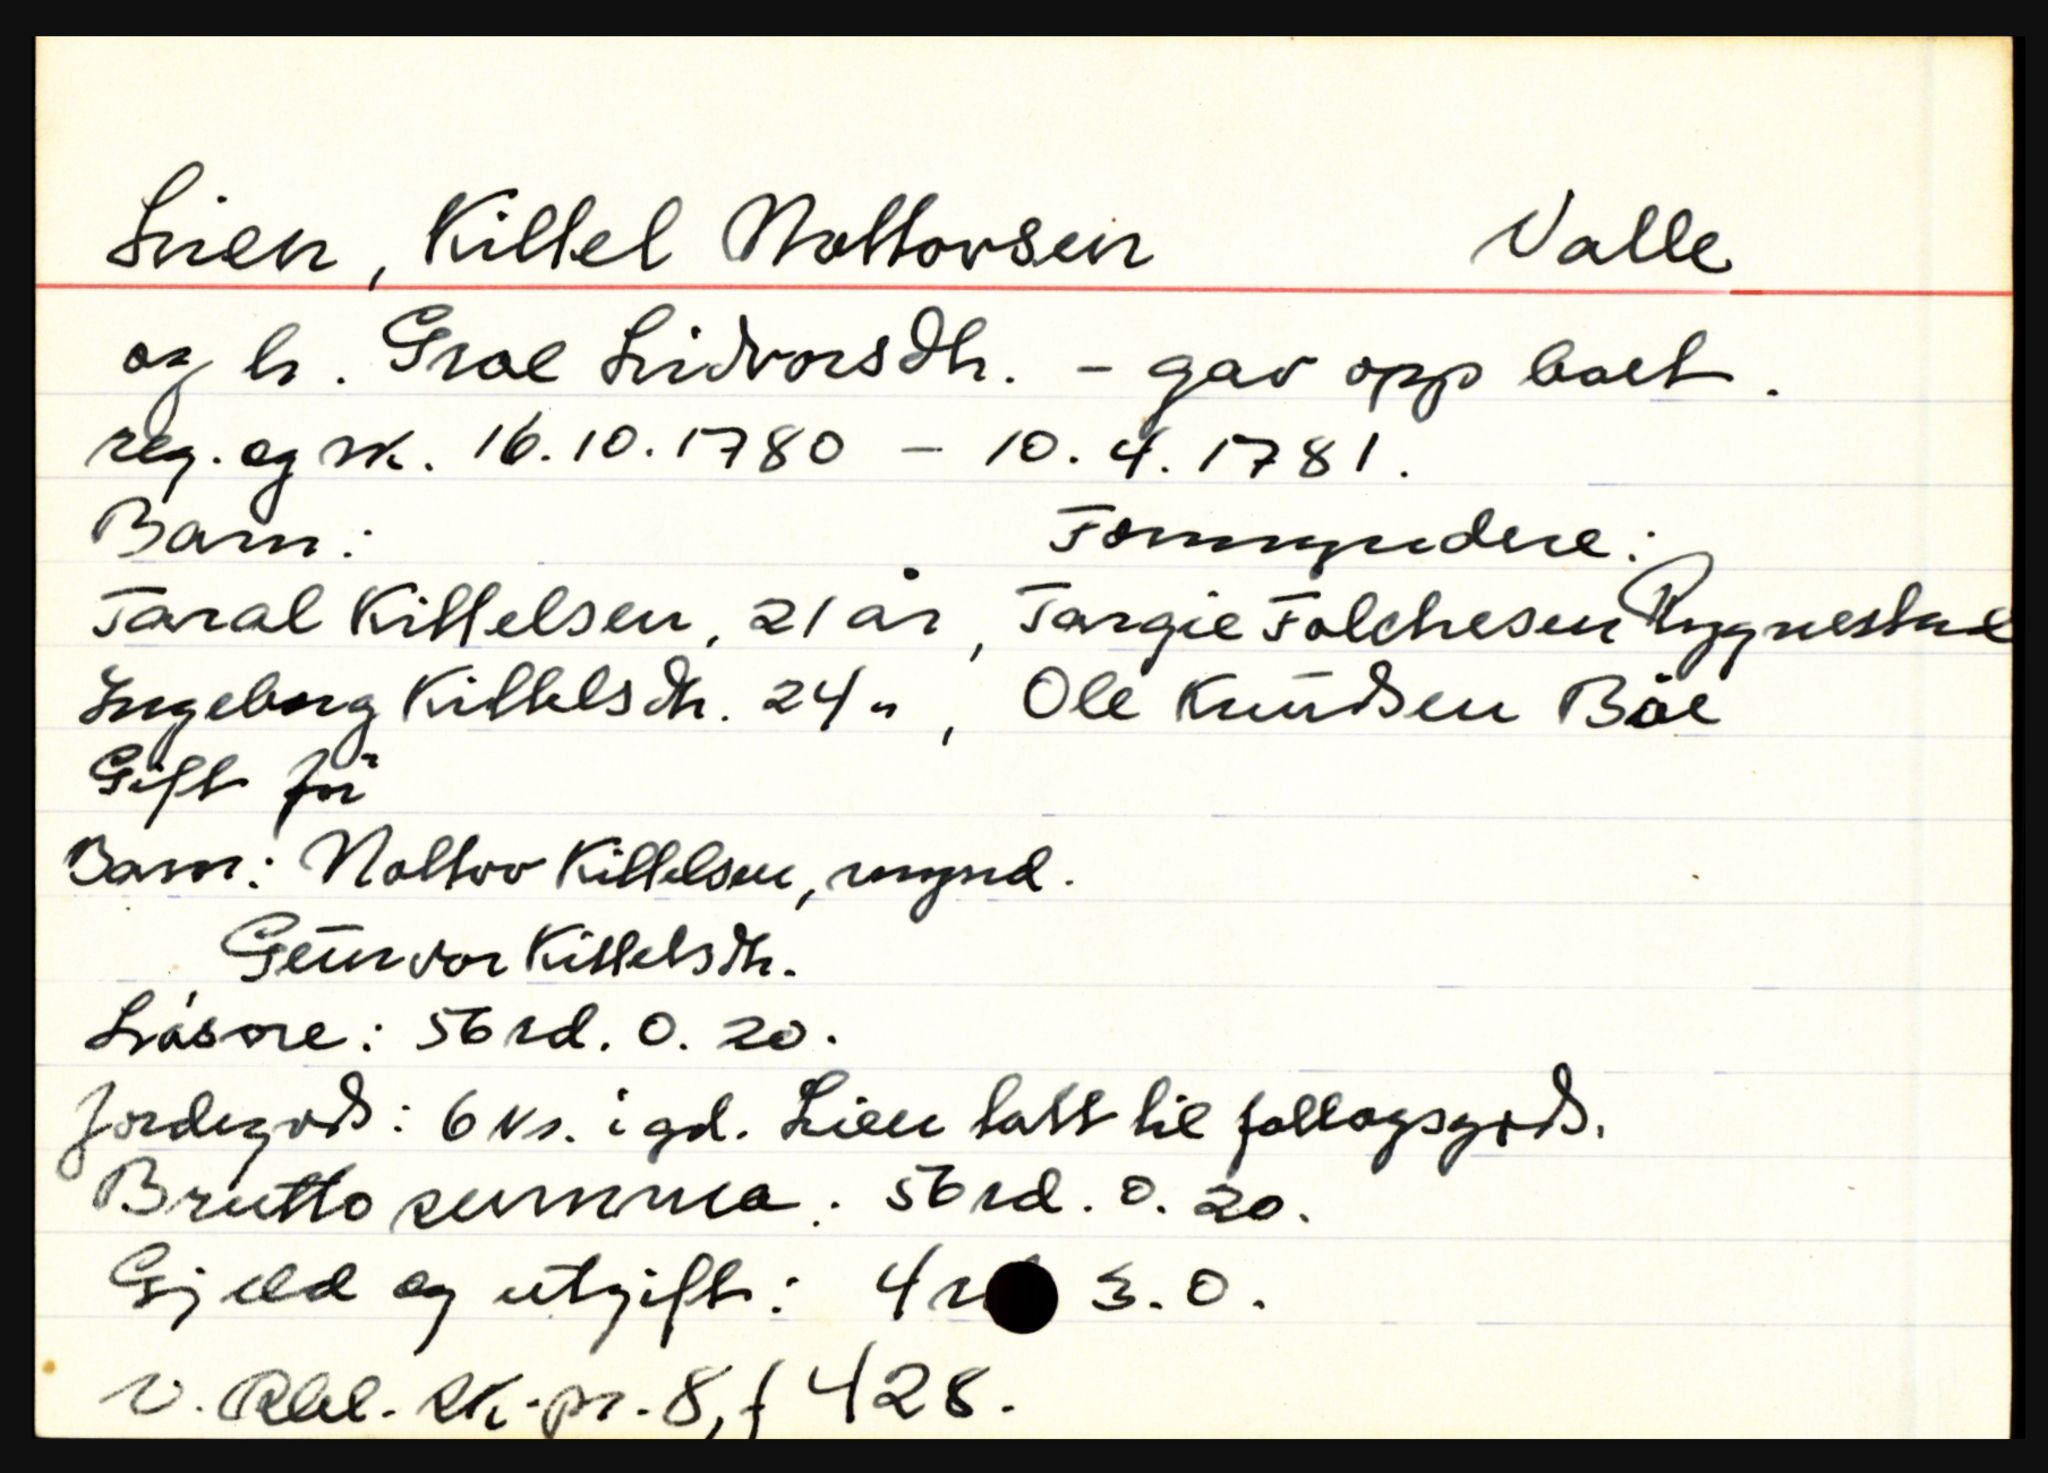 Lien, Kittel Nottovsen Valle
og h. Groe Lidvorsdtr. - gav opp boet.
reg. og sk. 16.10.1780 - 10.4.1781.
Barn: Formyndere:
Taral Kittelsen, 21 år, Targie Folchesen Rygnestad
Ingeborg Kittelsdtr. 24 ", Ole Knudsen Böe
Gift før
Barn: Nottov Kittelsen, mynd.
Gunvor Kittelsdtr.
Løsøre: 56 rd. 0. 20.
Jordegods: 6 ks. i gd. Lien tatt til følloagsgods.
Brutto summa: 56 rd. 0. 20.
Gjeld og utgift: 4 rd 3. 0.
v. Rbl. sk. pr. 8, f 428.